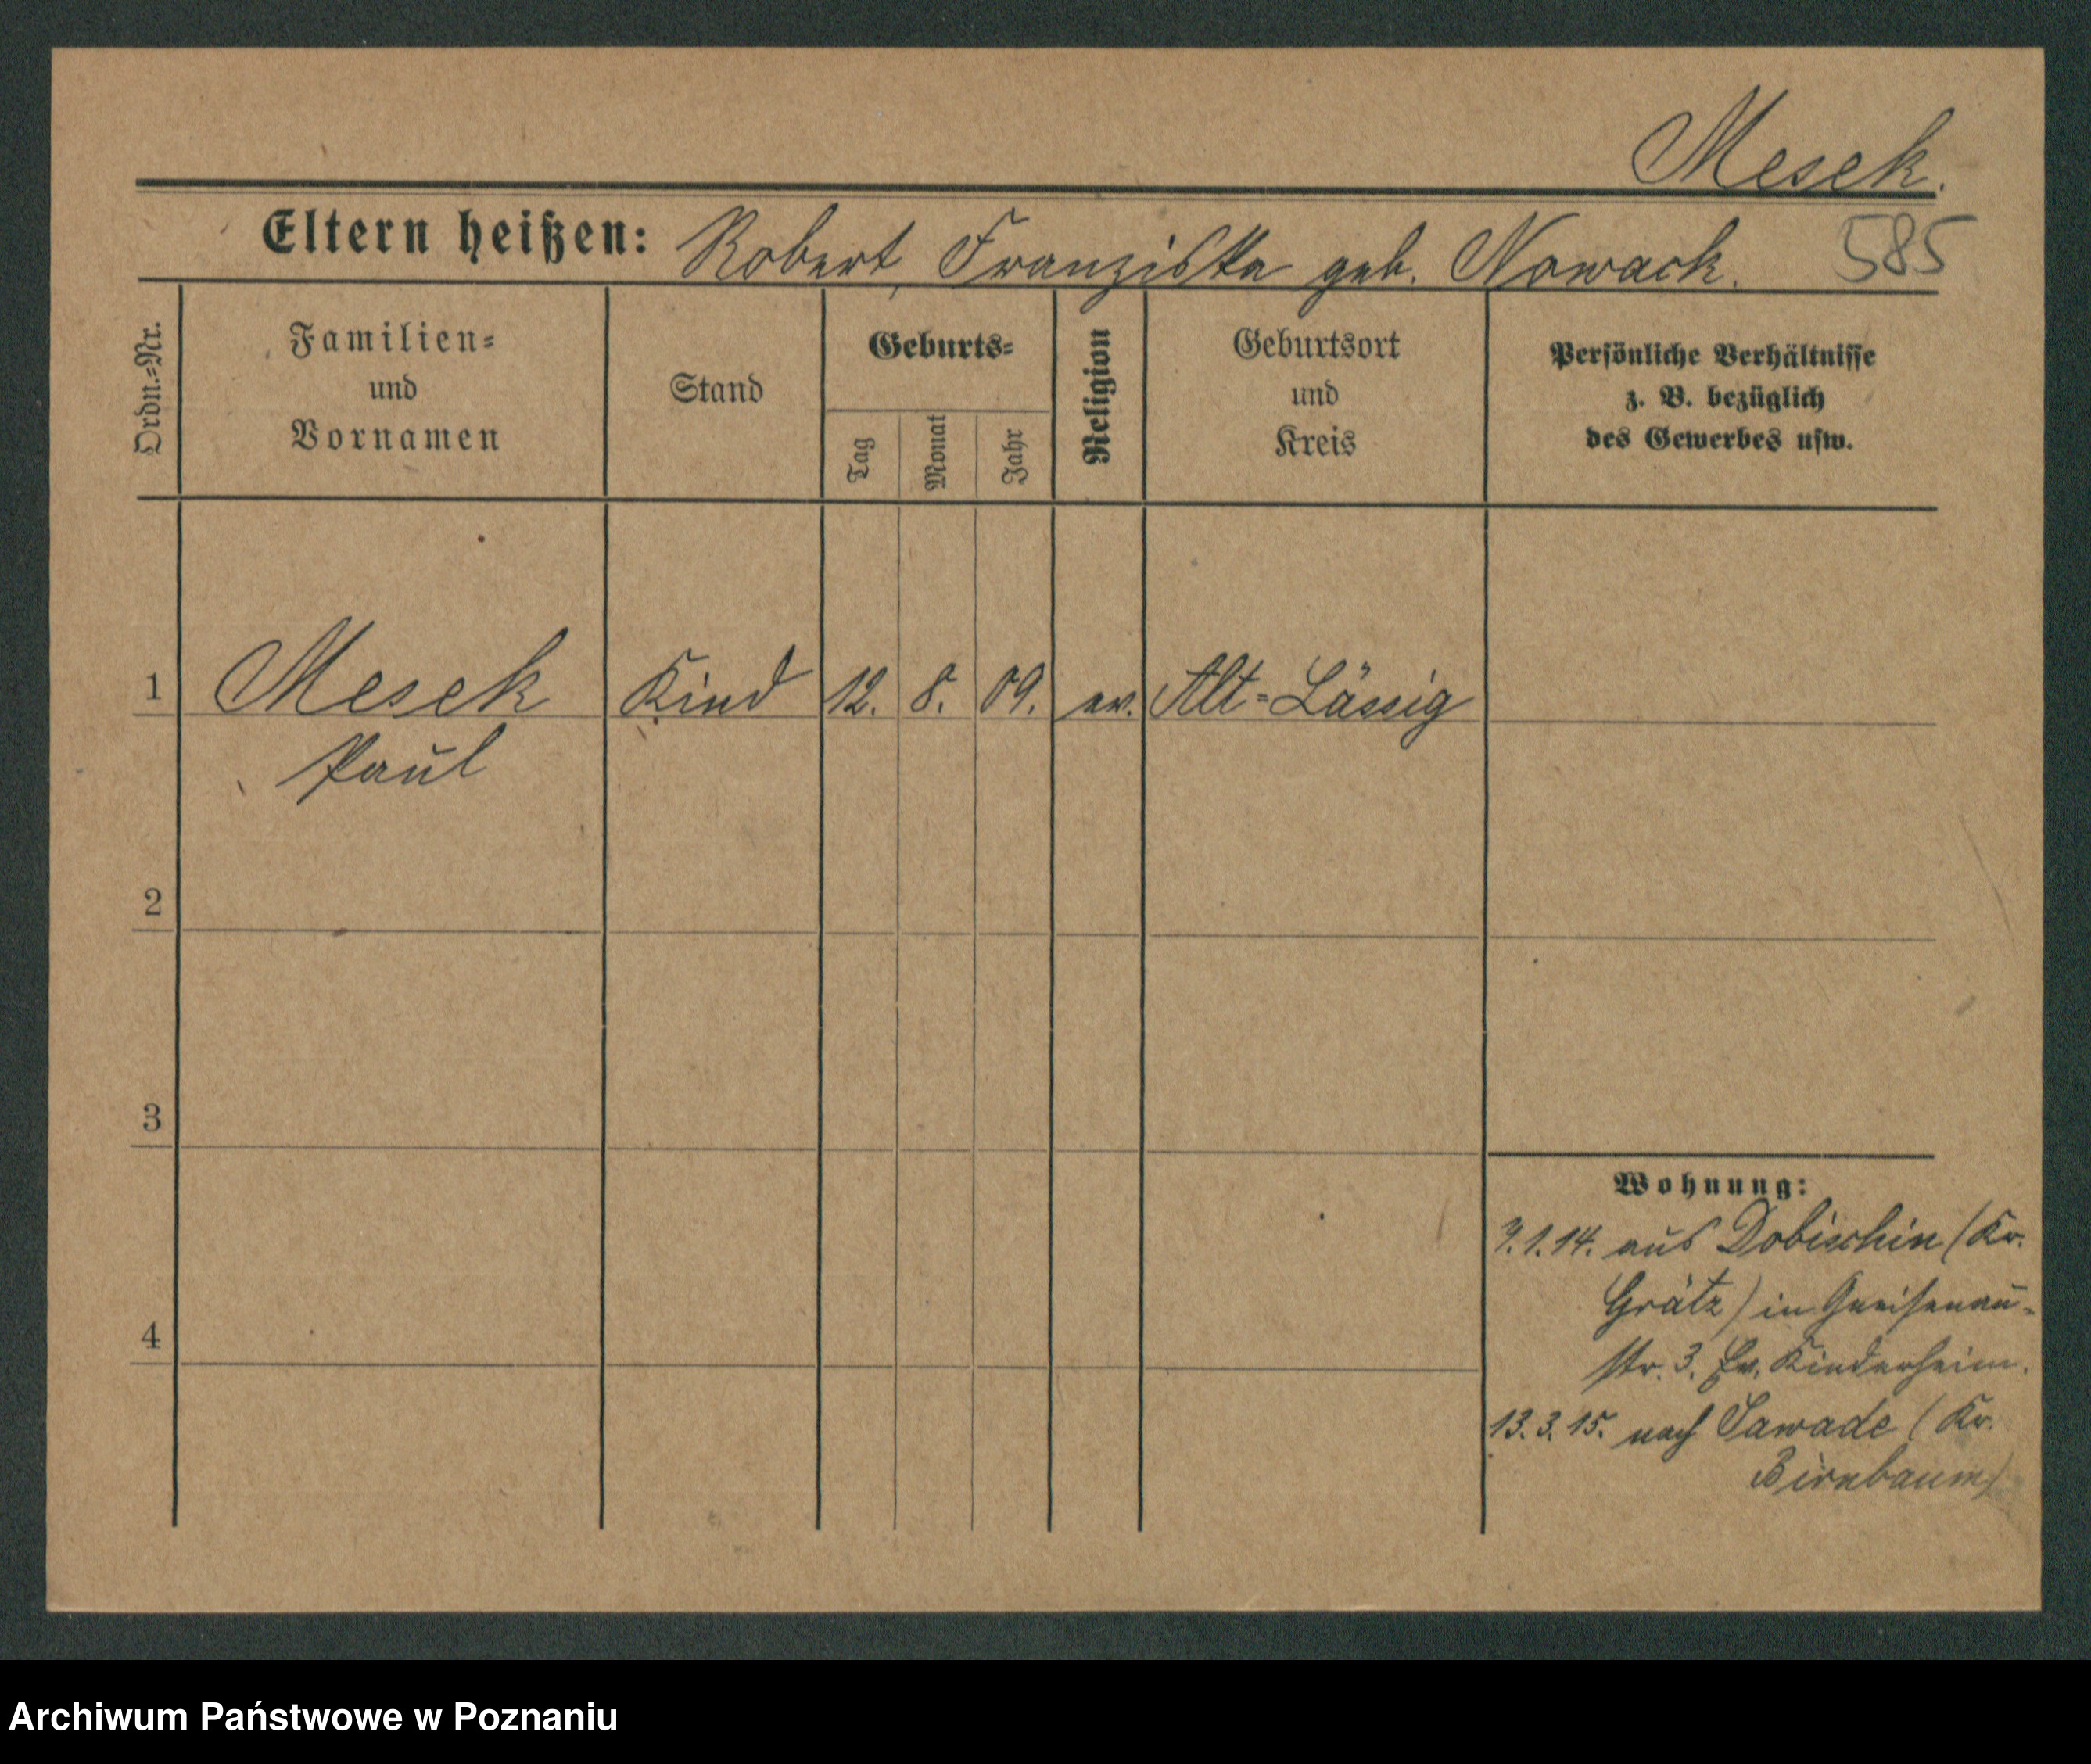 Mesek.
Eltern heißen: Robert, Franziska geb. Nowack.
585
Ordn.=Nr.
Familien=
und
Vornamen
Stand
Geburts=
Tag
Monat
Jahr
Religion
Geburtsort
und
Kreis
Persönliche Verhältnisse
z. B. bezüglich
des Gewerbes usw.
1 Mesek Kind 12. 8. 09. ev. Alt=Lässig
Paul
2
3
4
Wohnung:
7.1.14. aus Dobischin (Kr.
Grätz) in Gneisenau-
str. 3. Ev. Kinderheim.
13.3.15. nach Zawade (Kr.
Birnbaum)
Archiwum Państwowe w Poznaniu